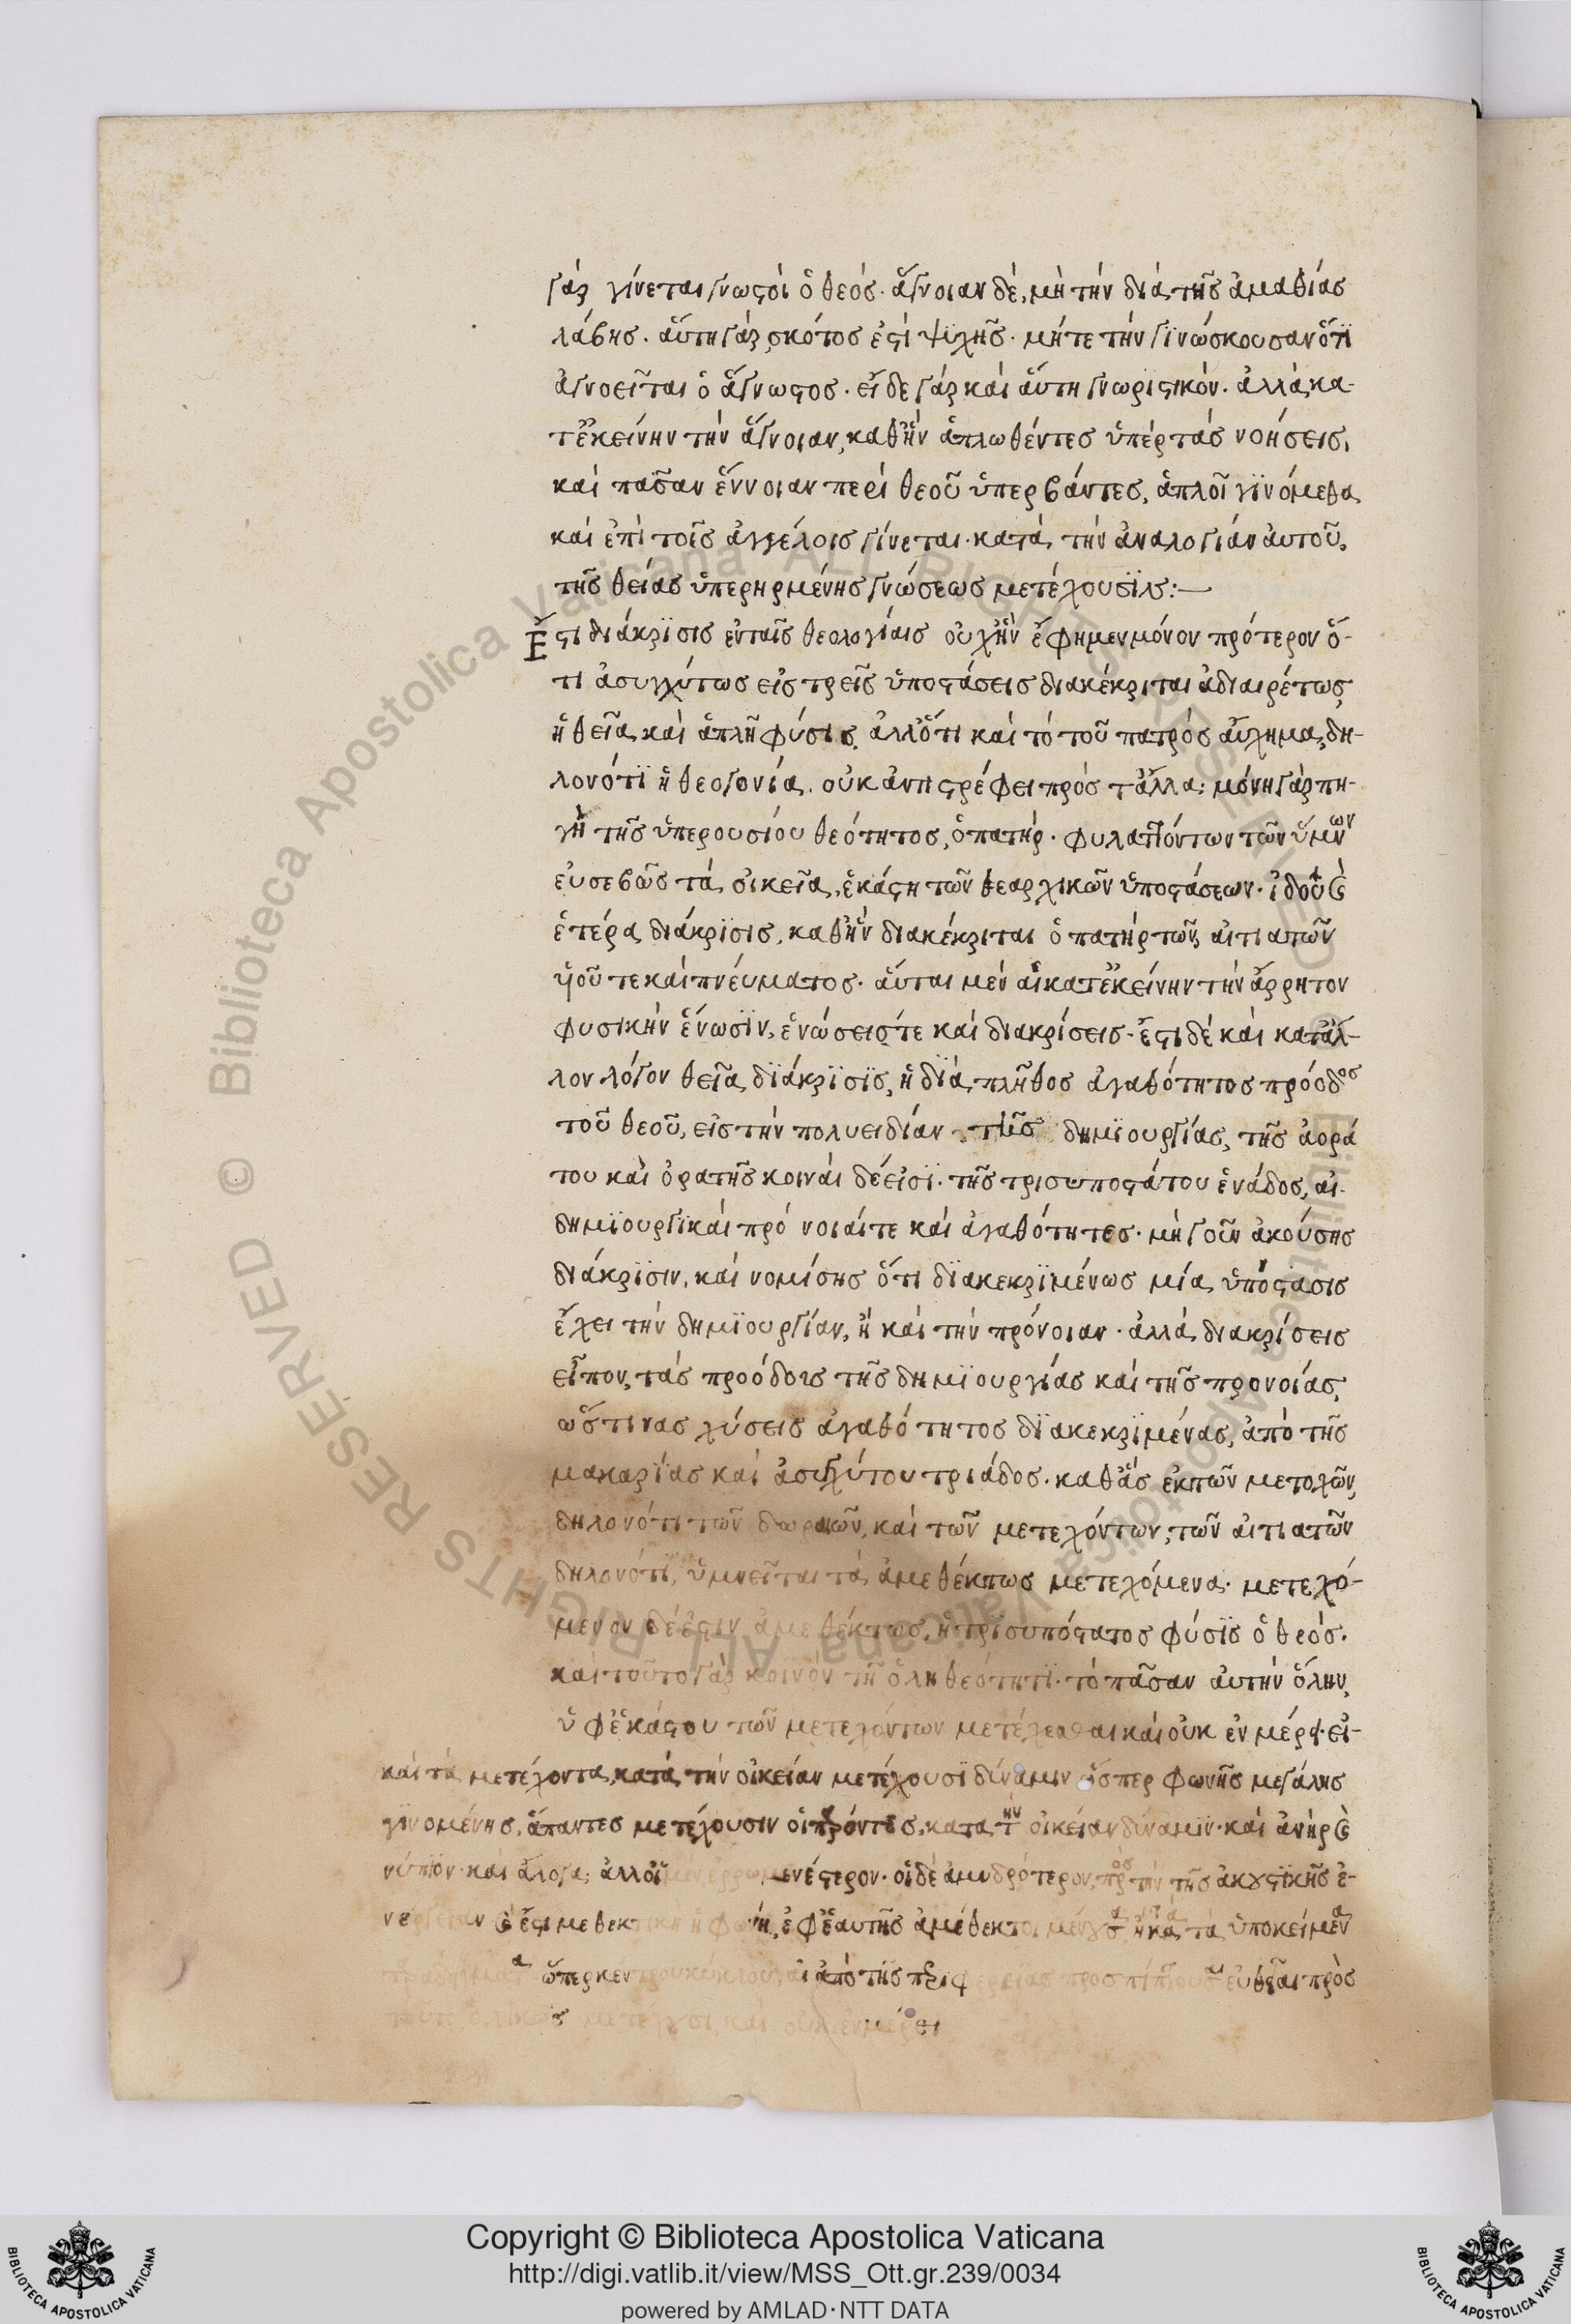 γὰρ γίνεται γνωστὸς ὁ θεός· ἄγνοιαν δὲ, μὴ τὴν διὰ τῆς ἀμαθίας
λάβῃς· αὕτη γὰρ σκότος ἐστὶ ψϋχῆς· μήτε τὴν γϊνώσκουσαν ὅτϊ
ἀγνοεῖται ὁ ἄγνωστος· εἶδε γὰρ καὶ αὕτη γνωριστικόν· ἀλλὰ κα-
τ' ἐκείνην τὴν ἄγνοιαν, καθ' ἣν ἁπλωθέντες ὑπὲρ τὰς νοήσεις,
καὶ πᾶσαν ἔννοιαν περὶ θεοῦ ὑπερβάντες, ἁπλοῖ γϊνόμεθα
καὶ ἐπὶ τοῖς ἀγγέλοις γίνεται· κατὰ τὴν ἀναλογίαν αὐτοῦ,
τῆς θείας ὑπερηρμένης γνώσεως μετέχουσϊν:—
Ἔστι διάκρϊσις ἐν ταῖς θεολογίαις οὐχ ἣν ἔφημεν μόνον πρότερον ὅ-
τι ἀσυγχύτως εἰς τρεῖς ὑποστάσεις διακέκριται ἀδιαιρέτως
ἡ θεία καὶ ἁπλῆ φύσις, ἀλλ' ὅτι καὶ τὸ τοῦ πατρὸς αὔχημα, δη-
λονότϊ ἡ θεογονία, οὐκ ἀντιστρέφει πρὸς τἆλλα· μόνη γὰρ πη-
γὴ τῆς ὑπερουσίου θεότητος, ὁ πατήρ· φυλαττόντων τῶν ὕμνων
εὐσεβῶς τὰ οἰκεῖα, ἑκάστη τῶν θεαρχικῶν ὑποστάσεων· ἰδοὺ καὶ
ἑτέρα διάκρϊσις, καθ' ἣν διακέκριται ὁ πατὴρ τῶν αἰτιατῶν
υἱοῦ τε καὶ πνεύματος· αὗται μὲν αἱ κατ' ἐκείνην τὴν ἄρρητον
φυσικὴν ἕνωσϊν, ἑνώσεις τε καὶ διακρίσεις· ἔστι δὲ καὶ κατ' ἄλ-
λον λόγον θεία δϊάκρϊσϊς, ἡ διὰ πλῆθος ἀγαθότητος πρόοδος
τοῦ θεοῦ, εἰς τὴν πολυειδίαν τῆς δημϊουργίας, τῆς ἀορά
του καὶ ὁρατῆς κοιναὶ δέ εἰσϊ· τῆς τρισυποστάτου ἑνάδος, αἱ
δημϊουργϊκαὶ πρόνοιαί τε καὶ ἀγαθότητες· μὴ γοῦν ἀκούσῃς
διάκρϊσιν, καὶ νομίσῃς ὅτι δϊακεκρϊμένως μία ὑπόστασις
ἔχει τὴν δημϊουργίαν, ἢ καὶ τὴν πρόνοιαν· ἀλλὰ διακρίσεις
εἶπον, τὰς προόδους τῆς δημϊουργίας καὶ τῆς προνοίας,
ὥς τινας χύσεις ἀγαθότητος δϊακεκρϊμένας, ἀπὸ τῆς
μακαρίας καὶ ἀσυγχύτου τριάδος· καθ' ἃς ἐκ τῶν μετοχῶν,
δηλονότι τῶν δωρεῶν, καὶ τῶν μετεχόντων, τῶν αἰτιατῶν
δηλονότϊ, ὑμνεῖται τὰ ἀμεθέκτως μετεχόμενα· μετεχό-
μενον δέ ἐστιν ἀμεθέκτως, ἡ τρϊσυπόστατος φύσϊς ὁ θεός·
καὶ τοῦτο γὰρ κοϊνὸν τῇ ὅλῃ θεότητϊ· τὸ πᾶσαν αὐτὴν ὅλην,
ὑφ' ἑκάστου τῶν μετεχόντων μετέχεσθαι καὶ οὐκ ἐν μέρει· εἰ-
καὶ τὰ μετέχοντα, κατὰ τὴν οἰκείαν μετέχουσϊ δύναμιν ὥσπερ φωνῆς μεγάλης
γϊνομένης, ἅπαντες μετέχουσιν οἱ παρόντες, κατὰ τὴν οἰκείαν δύναμϊν· καὶ ἀνὴρ καὶ
νύπϊον· καὶ ἄλογα· ἀλλ' οἱ μὲν ἐρρωμενέστερον· οἱ δὲ ἀμυδρότερον, πρὸς τὴν τῆς ἀκουστϊκῆς ἐ-
νέργειαν καὶ ἔστι μεθεκτικὴ ἡ φωνή, ἐφ' ἑαυτῆς ἀμέθεκτοι τὰ ὑποκείμενα
ὥσπερ κέντρου κύκλου, αἱ ἀπὸ τῆς περιφερείας προσπίπτουσαι εὐθεῖαι πρὸς
τοῦτο μετέχουσι, καὶ οὐκ ἐν μέρει